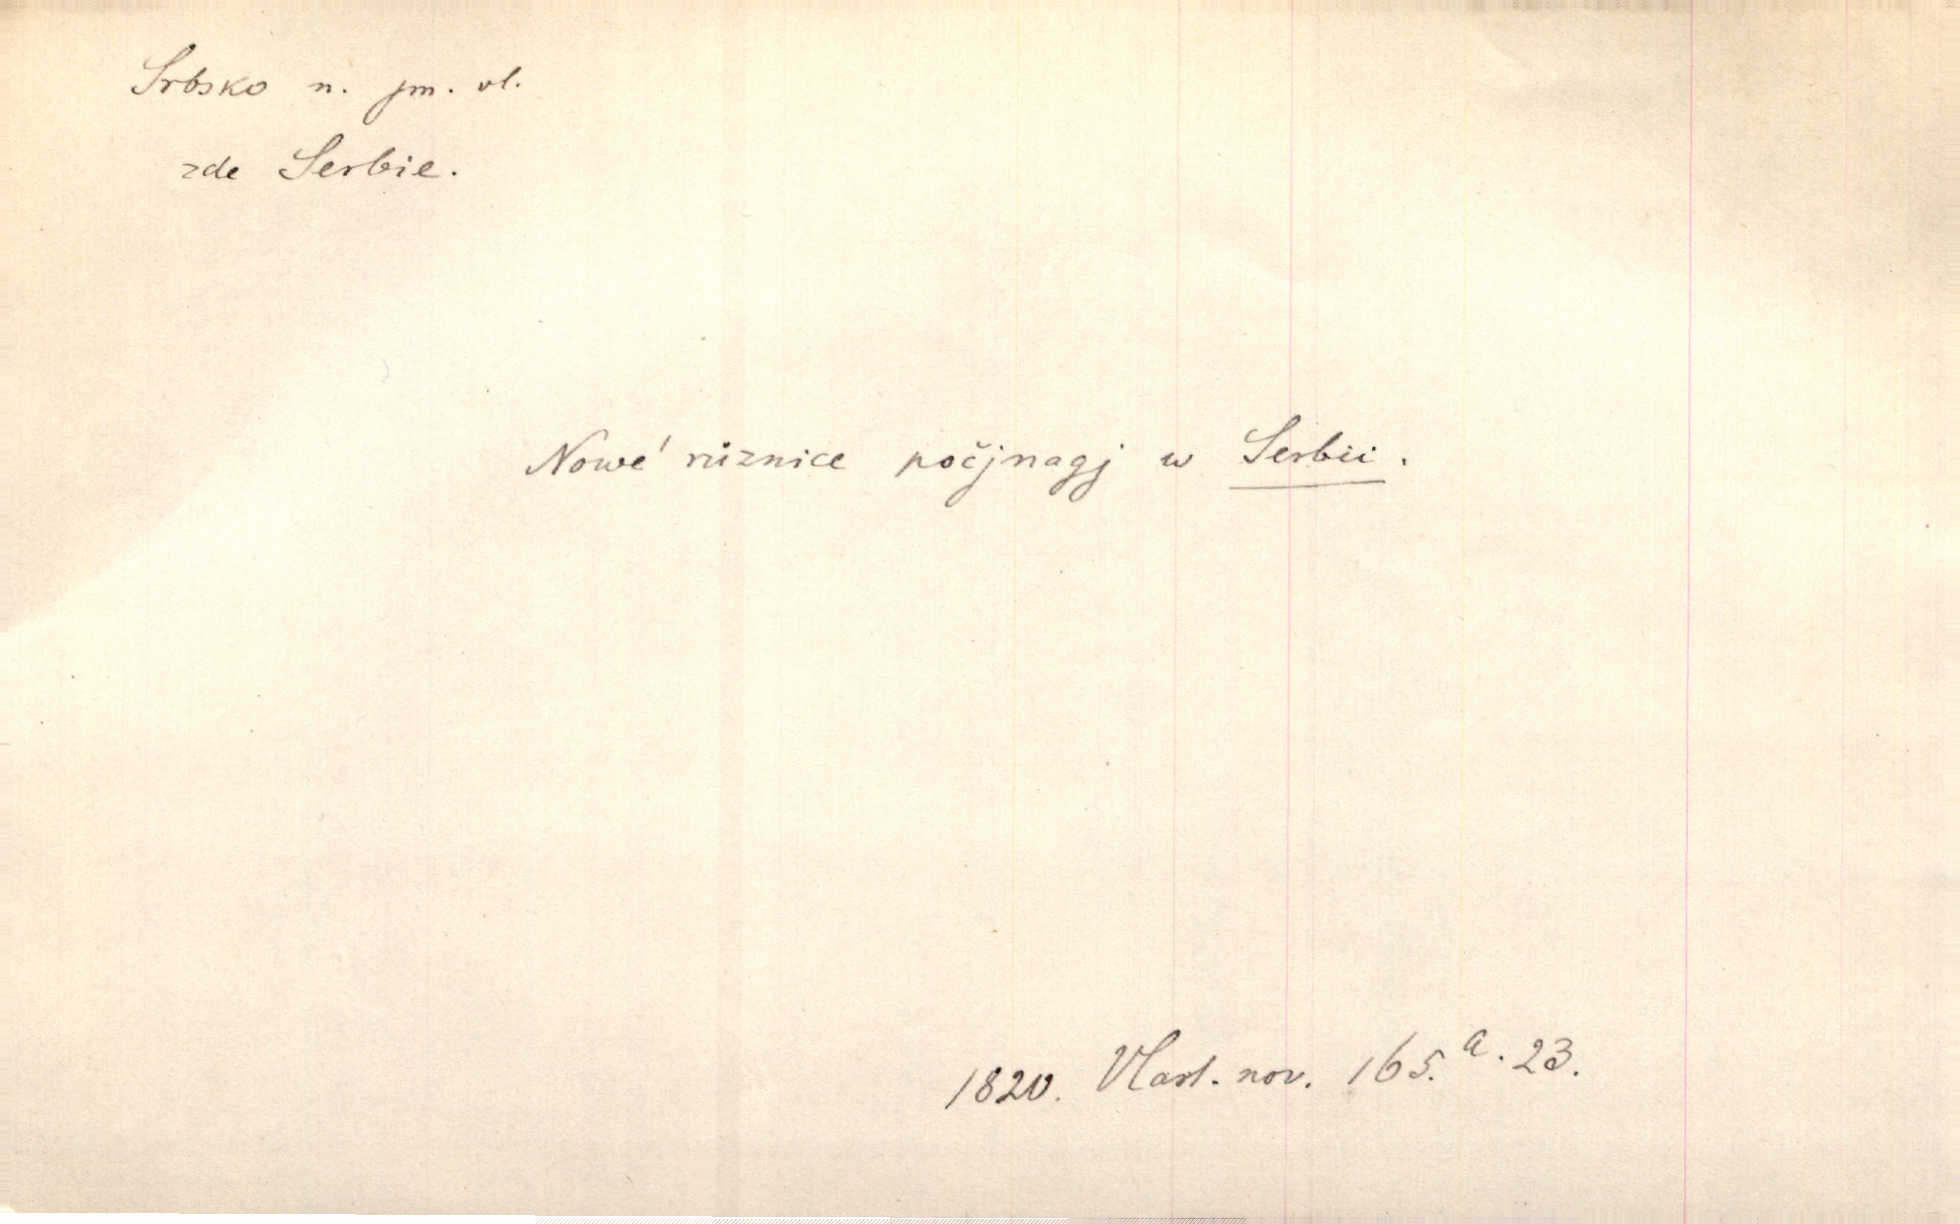 Srbsko n. jm. vl.
zde Serbie.
Nowé různice počjnagj w Serbii.
1820. Vlast. nov. 165.a. 23.